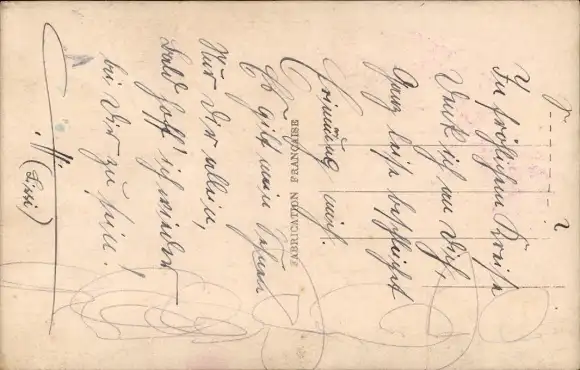 In fröhlichem Kreise
Denk' ich an Dich,
Ganz leise beschleicht
Erinn'rung mich.
Es gilt mein Sehnen
Nur Dir allein,
Bald hoff' ich wieder
bei Dir zu sein!
(Lissi)
FABRICATION FRANÇAISE